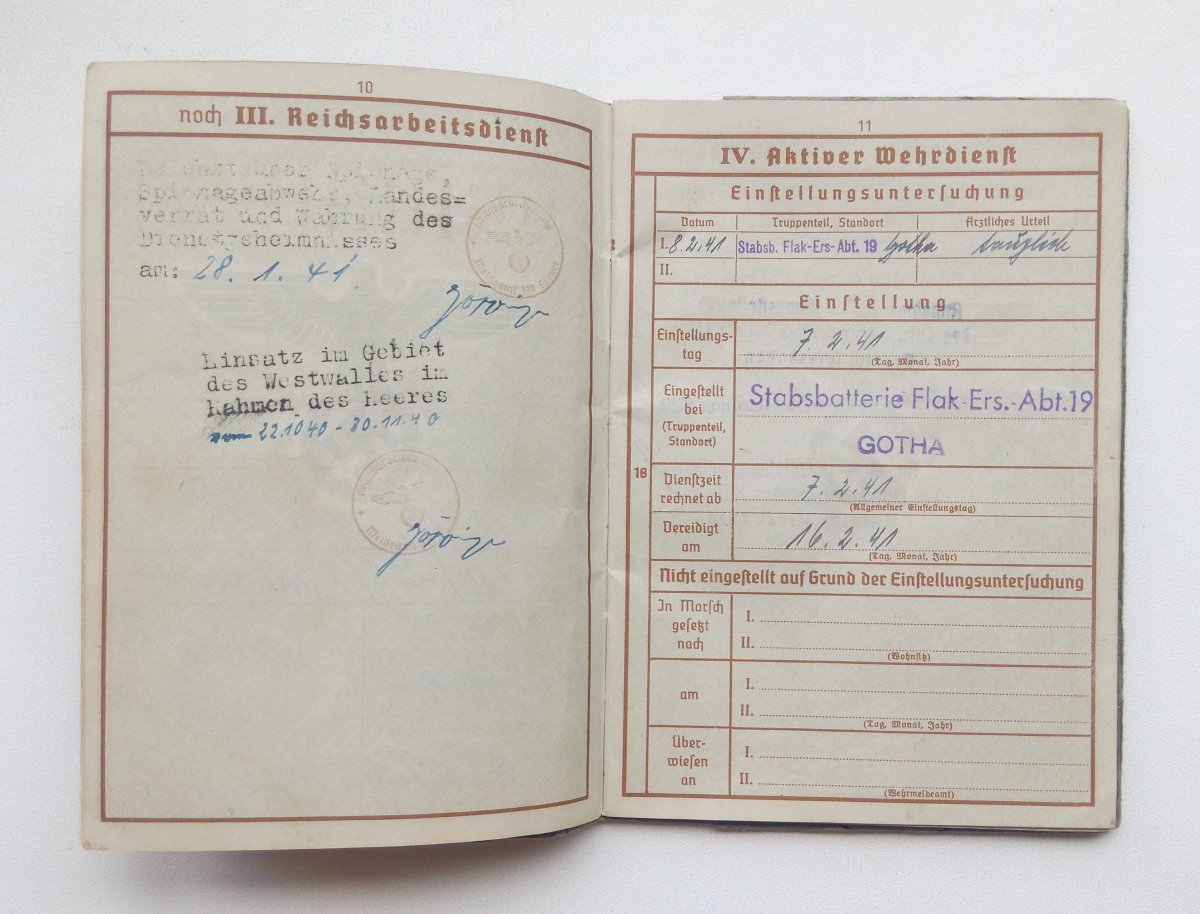 10
noch III. Reichsarbeitsdienst
Belehrt über Spionage,
Spionageabwehr, Landes=
verrat und Wahrung des
Dienstgeheimnisses
am: 28. 1. 41.
Einsatz im Gebiet
des Westwalles im
Rahmen des Heeres
vom 22.10.40 - 30.11.40
11
IV. Aktiver Wehrdienst
Einstellungsuntersuchung
Datum Truppenteil, Standort Ärztliches Urteil
I. 8.2.41 Stabsb. Flak-Ers-Abt. 19 Gotha tauglich
II.
Einstellung
Einstellungs-
tag
7.2.41
(Tag, Monat, Jahr)
Eingestellt
bei
(Truppenteil,
Standort)
Stabsbatterie Flak-Ers.-Abt.19
GOTHA
18
Dienstzeit
rechnet ab
7.2.41
(Allgemeiner Einstellungstag)
Vereidigt
am
16.2.41
(Tag, Monat, Jahr)
Nicht eingestellt auf Grund der Einstellungsuntersuchung
In Marsch
gesetzt
nach
I.
II.
(Wohnsitz)
am
I.
II.
(Tag, Monat, Jahr)
Über-
wiesen
an
I.
II.
(Wehrmeldeamt)